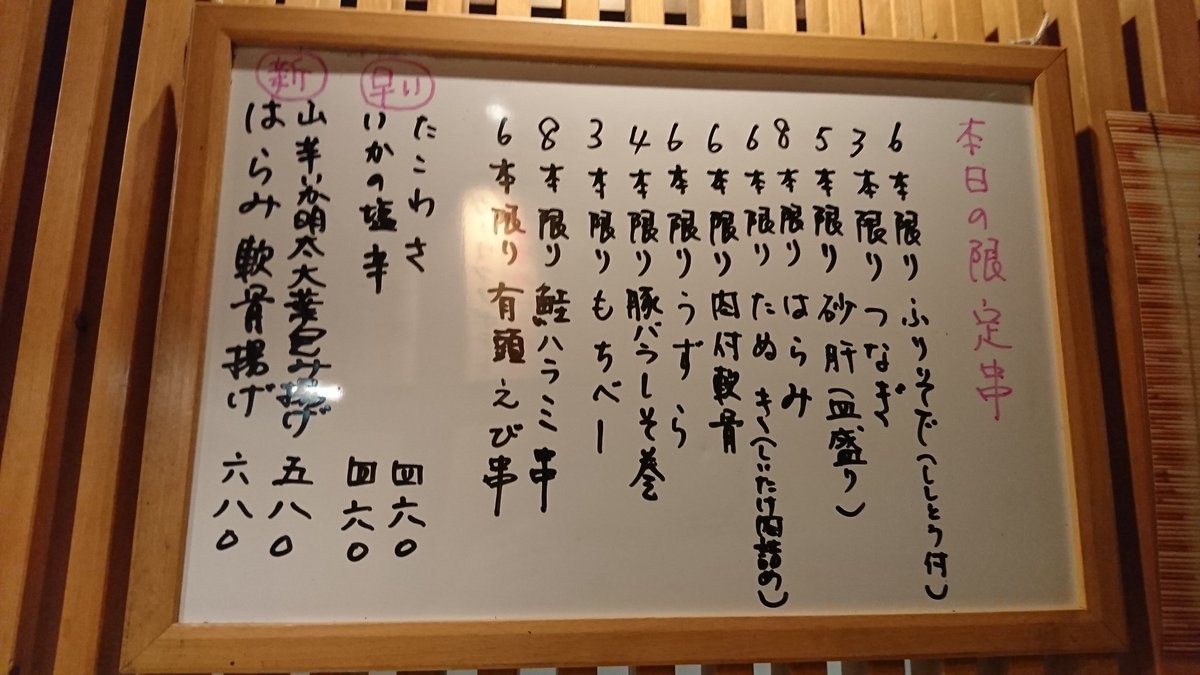 本日の限定串
6本限り ふりそで(ししとう付)
3本限り つなぎ
5本限り 砂肝(皿盛り)
8本限り はらみ
6本限り たぬき(しいたけ肉詰め)
6本限り 肉付軟骨
6本限り うずら
4本限り 豚バラしそ巻
3本限り もちベー
8本限り 鮭ハラミ串
6本限り 有頭えび串
早い
たこわさ 四六〇
いかの塩辛 四六〇
新
山芋いか明太大葉包み揚げ 五八〇
はらみ軟骨揚げ 六八〇